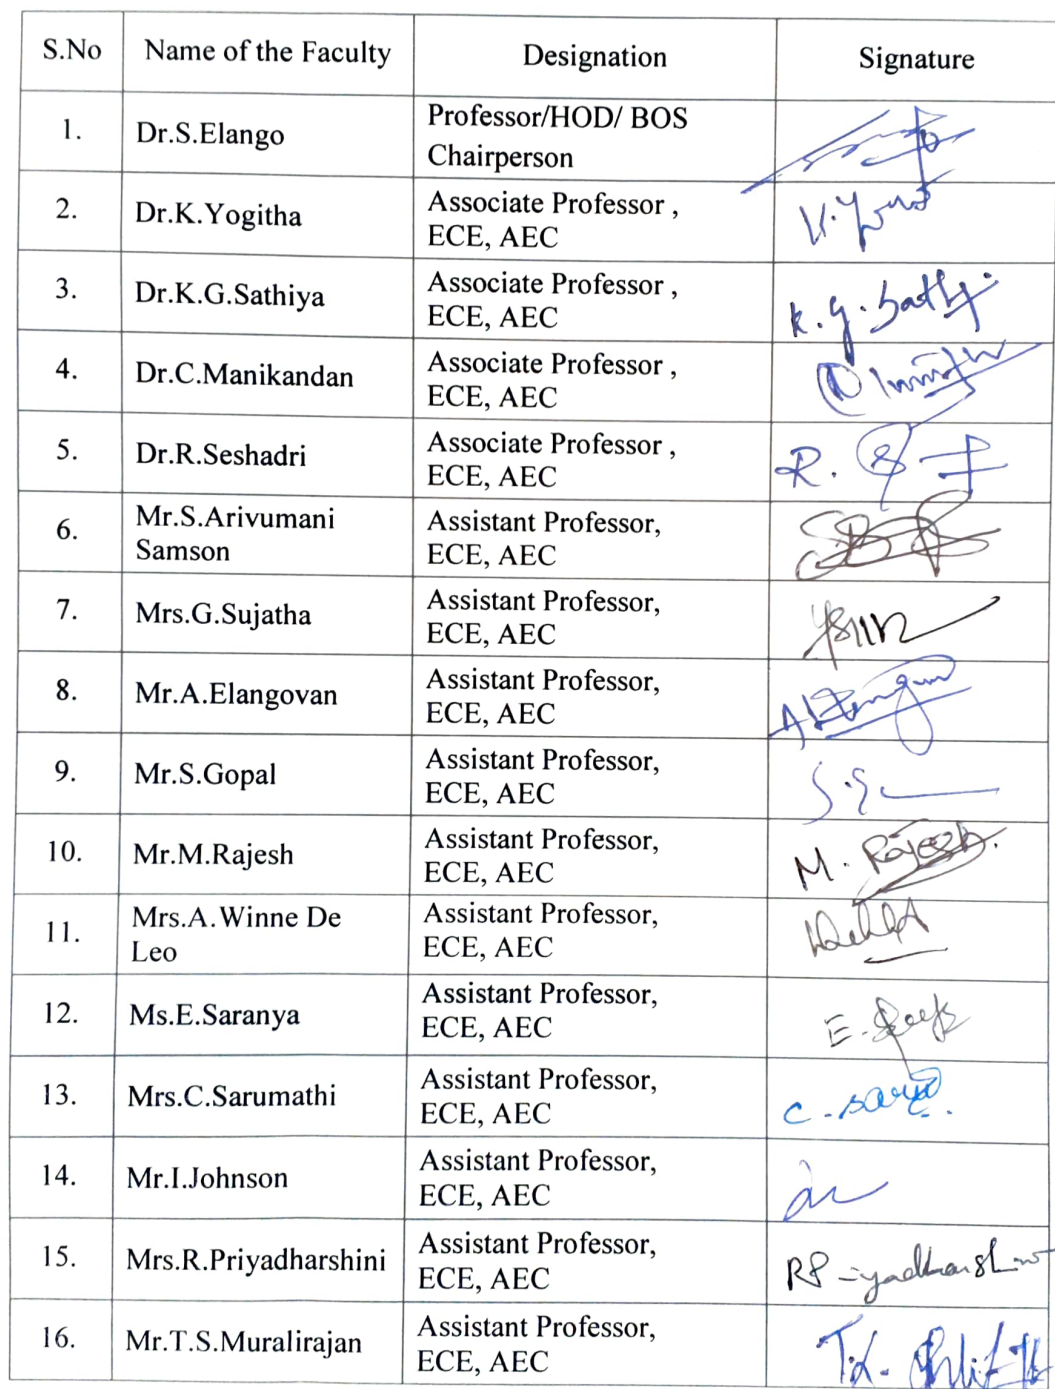 S.No Name of the Faculty Designation Signature
1. Dr.S.Elango Professor/HOD/ BOS
Chairperson
2. Dr.K.Yogitha Associate Professor ,
ECE, AEC
3. Dr.K.G.Sathiya Associate Professor ,
ECE, AEC K.G.Sathy
4. Dr.C.Manikandan Associate Professor ,
ECE, AEC
5. Dr.R.Seshadri Associate Professor ,
ECE, AEC R.
6. Mr.S.Arivumani
Samson Assistant Professor,
ECE, AEC
7. Mrs.G.Sujatha Assistant Professor,
ECE, AEC
8. Mr.A.Elangovan Assistant Professor,
ECE, AEC
9. Mr.S.Gopal Assistant Professor,
ECE, AEC
10. Mr.M.Rajesh Assistant Professor,
ECE, AEC M. Rajesh.
11. Mrs.A.Winne De
Leo Assistant Professor,
ECE, AEC
12. Ms.E.Saranya Assistant Professor,
ECE, AEC E.
13. Mrs.C.Sarumathi Assistant Professor,
ECE, AEC C.
14. Mr.I.Johnson Assistant Professor,
ECE, AEC
15. Mrs.R.Priyadharshini Assistant Professor,
ECE, AEC
16. Mr.T.S.Muralirajan Assistant Professor,
ECE, AEC